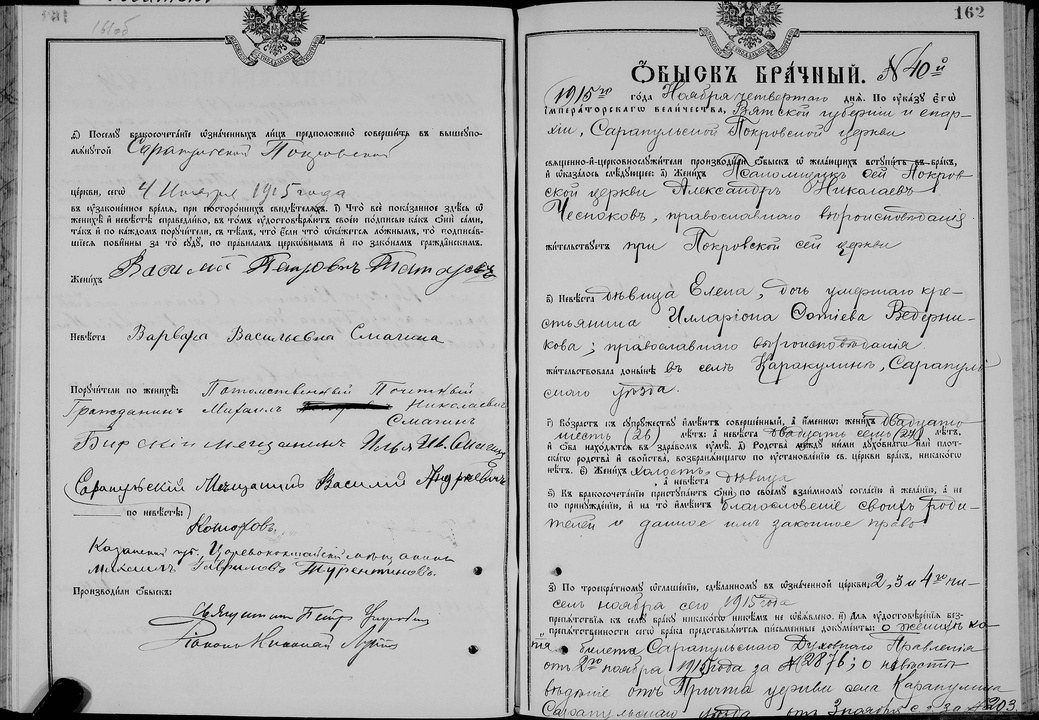 161об
д) Посему бракосочетаніе означенныхъ лицъ предположено совершить въ вышеупо-
мянутой Сарапульской Покровской
церкви, сего 4 Ноября 1915 года
въ узаконенное время, при постороннихъ свидѣтеляхъ. і) Что все показанное здѣсь о
женихѣ и невѣстѣ справедливо, въ томъ удостовѣряютъ своею подписью какъ они сами,
такъ и по каждомъ поручители, съ тѣмъ, что если что окажется ложнымъ, то подписав-
шіеся повинны за то суду, по правиламъ церковнымъ и по законамъ гражданскимъ.
Женихъ Василій Петровъ Татаровъ
Невѣста Варвара Васильевна Смагина
Поручители по женихѣ: Потомственный Почетный
Гражданинъ Михаилъ Николаевичъ
Смагинъ
Бирскій мещанинъ Илья Ив.
Сарапульскій Мещанинъ Василій Андреевичъ
по невѣстѣ:
Комаровъ.
Казанской губ. Царевококшайскій мещанинъ
Михаилъ Гавриловъ Турентиновъ.
Производили обыскъ:
Священникъ Петръ
Николай
162
Обыскъ брачный. №40й
1915го года Ноября четвертаго дня. По указу Его
Императорскаго Величества, Вятской губерніи и епар-
хіи, Сарапульской Покровской церкви
священно-и-церковнослужители производили обыскъ о желающихъ вступить въ бракъ,
и оказалось слѣдующее: а) Женихъ Псаломщикъ сей Покров
ской церкви Александръ Николаевъ
Чесноковъ, православнаго вѣроисповѣданія
жительствуетъ при Покровской сей церкви
б) Невѣста дѣвица Елена, дочь умершаго кре-
стьянина Илларіона Сотіева Ведерни-
кова; православнаго вѣроисповѣданія
жительствовала донынѣ въ селѣ Каракулинѣ, Сарапуль
скаго уѣзда.
г) Возрастъ къ супружеству имѣютъ совершенный, а именно: женихъ двадцать
шесть (26) лѣтъ; а невѣста двадцать семь (27) лѣтъ,
и оба находятся въ здравомъ умѣ. д) Родства между ними духовнаго или плот-
скаго родства и свойства, возбраняющаго по установленію св. церкви бракъ, никакого
нѣтъ. е) Женихъ холостъ,
а невѣста дѣвица
ѕ) Къ бракосочетанію приступаютъ они по своему взаимному согласію и желанію, а не
по принужденію, и на то имѣютъ благословеніе своихъ роди-
телей и данное имъ законное право
з) По троекратному оглашенію, сдѣланному въ означенной церкви, 2, 3 и 4го чи-
селъ ноября сего 1915 года
препятствія къ сему браку никакого никѣмъ не объявлено. и) Для удостовѣренія без-
препятственности сего брака представляются письменные документы: о женихѣ ко
пія билета Сарапульскаго Духовнаго Правленія
отъ 2го ноября 1915 года за №2876; о невѣстѣ
вѣдѣніе отъ Причта церкви села Каракулина
Сарапульскаго уѣзда отъ 3 ноября с. г. за №203.